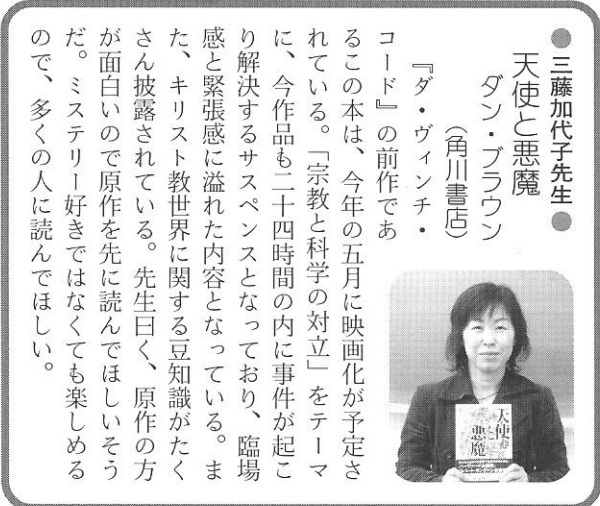 ●三藤加代子先生●
天使と悪魔
ダン・ブラウン
(角川書店)
『ダ・ヴィンチ・
コード』の前作であ
るこの本は、今年の五月に映画化が予定さ
れている。「宗教と科学の対立」をテーマ
に、今作品も二十四時間の内に事件が起こ
り解決するサスペンスとなっており、臨場
感と緊張感に溢れた内容となっている。ま
た、キリスト教世界に関する豆知識がたく
さん披露されている。先生曰く、原作の方
が面白いので原作を先に読んでほしいそう
だ。ミステリー好きではなくても楽しめる
ので、多くの人に読んでほしい。
天使と
悪魔